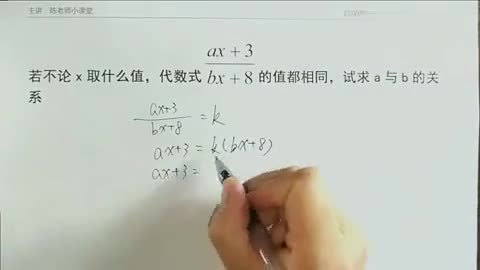 主讲：陈老师小课堂
若不论 x 取什么值，代数式 \frac{ax+3}{bx+8} 的值都相同，试求 a 与 b 的关
系
\frac{ax+3}{bx+8} = k
ax+3 = k(bx+8)
ax+3 =